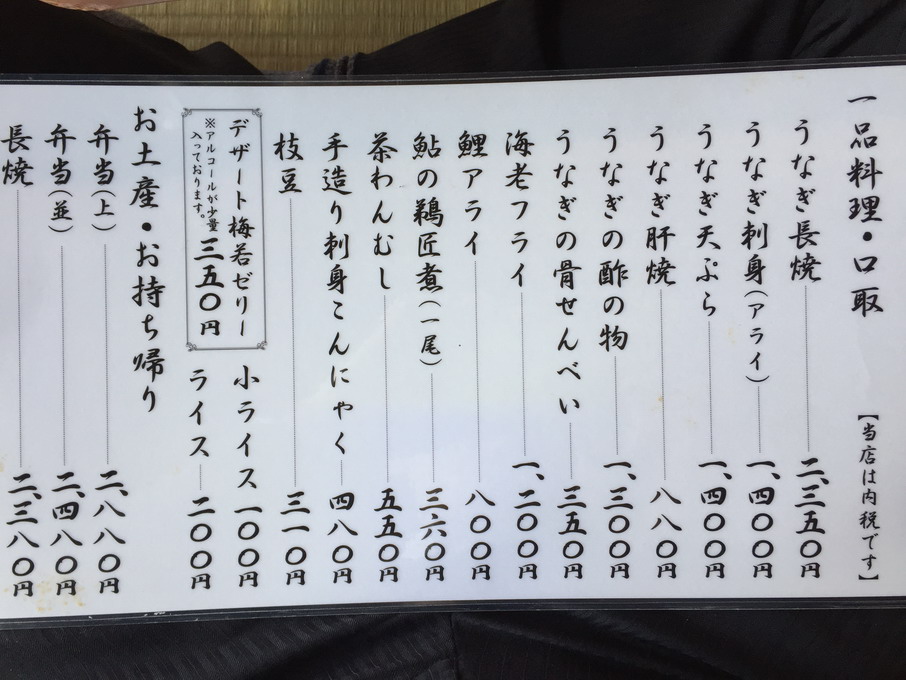 一品料理・口取
【当店は内税です】
うなぎ長焼 二、三五〇円
うなぎ刺身(アライ) 一、四〇〇円
うなぎ天ぷら 一、四〇〇円
うなぎ肝焼 八八〇円
うなぎの酢の物 一、三〇〇円
うなぎの骨せんべい 三五〇円
海老フライ 一、二〇〇円
鯉アライ 八〇〇円
鮎の鵜匠煮(一尾) 三六〇円
茶わんむし 五五〇円
手造り刺身こんにゃく 四八〇円
枝豆 三一〇円
デザート梅若ゼリー
※アルコールが少量
入っております。
三五〇円
小ライス 一〇〇円
ライス 二〇〇円
お土産・お持ち帰り
弁当(上) 二、八八〇円
弁当(並) 二、四八〇円
長焼 二、三八〇円